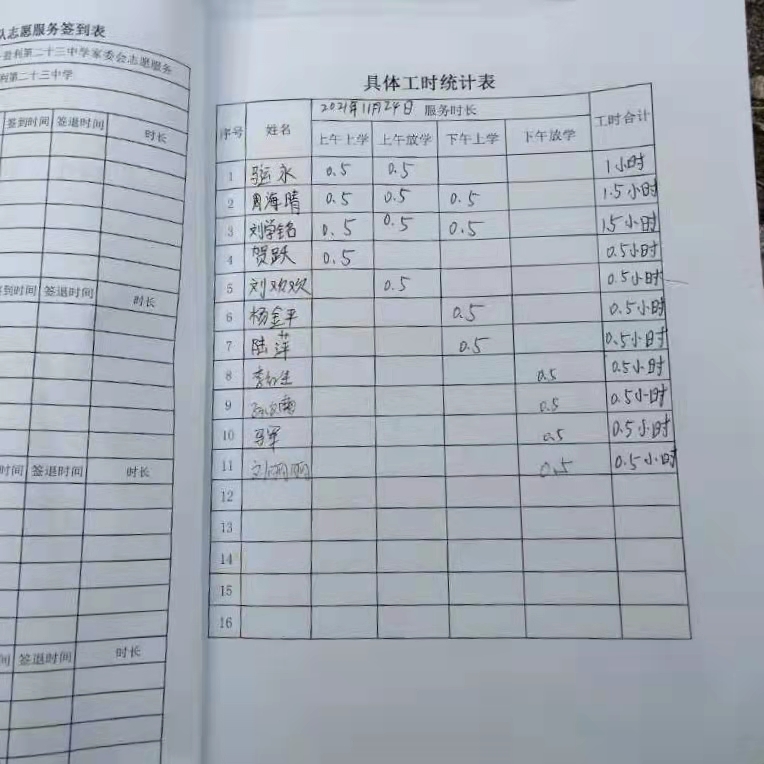 队志愿服务签到表
胜利第二十三中学家委会志愿服务
利第二十三中学
签到时间 签退时间 时长
到时间 签退时间 时长
时间 签退时间 时长
间 签退时间 时长
具体工时统计表
序号 姓名 2021年11月24日 服务时长 工时合计
上午上学 上午放学 下午上学 下午放学
1 永 0.5 0.5 1小时
2 周海晴 0.5 0.5 0.5 1.5小时
3 刘学铭 0.5 0.5 0.5 1.5小时
4 贺跃 0.5 0.5小时
5 刘欢欢 0.5 0.5小时
6 杨金平 0.5 0.5小时
7 陆萍 0.5 0.5小时
8 0.5 0.5小时
9 0.5 0.5小时
10 马军 0.5 0.5小时
11 刘丽丽 0.5 0.5小时
12
13
14
15
16